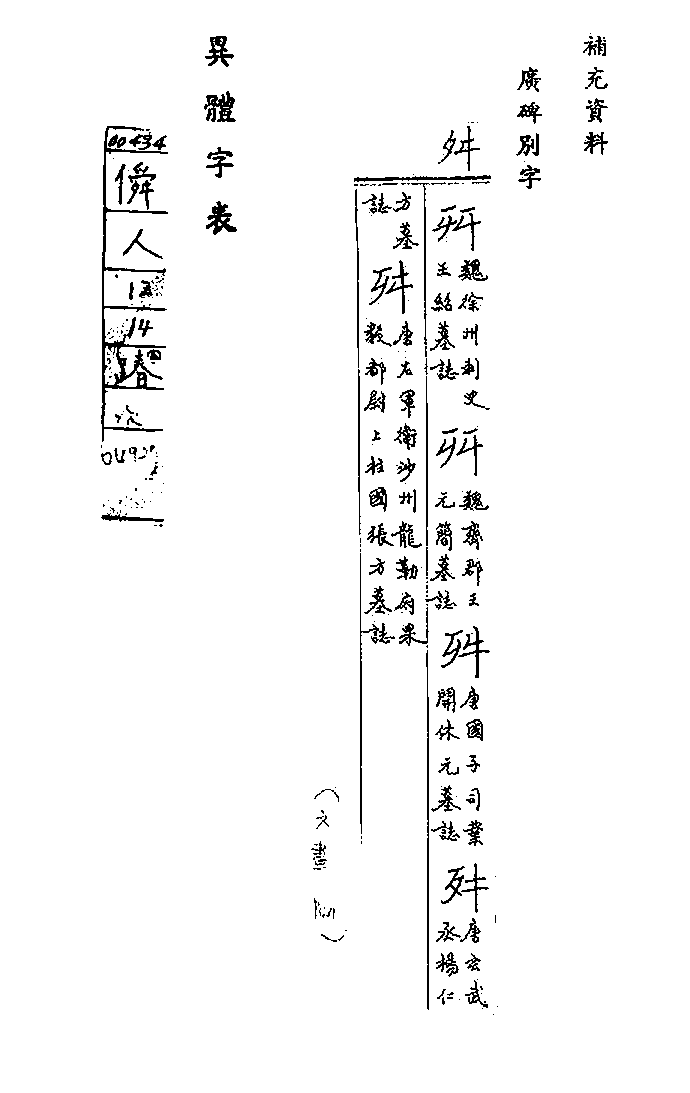 補充資料
廣碑別字
舛
魏徐州刺史
王紹墓誌
魏齊郡王
元簡墓誌
唐國子司業
開休元墓誌
唐玄武
丞楊仁
方墓
誌
唐右軍衛沙州龍勒府果
毅都尉上柱國張方墓誌
異體字表
00434
僢
人
12
14
踳